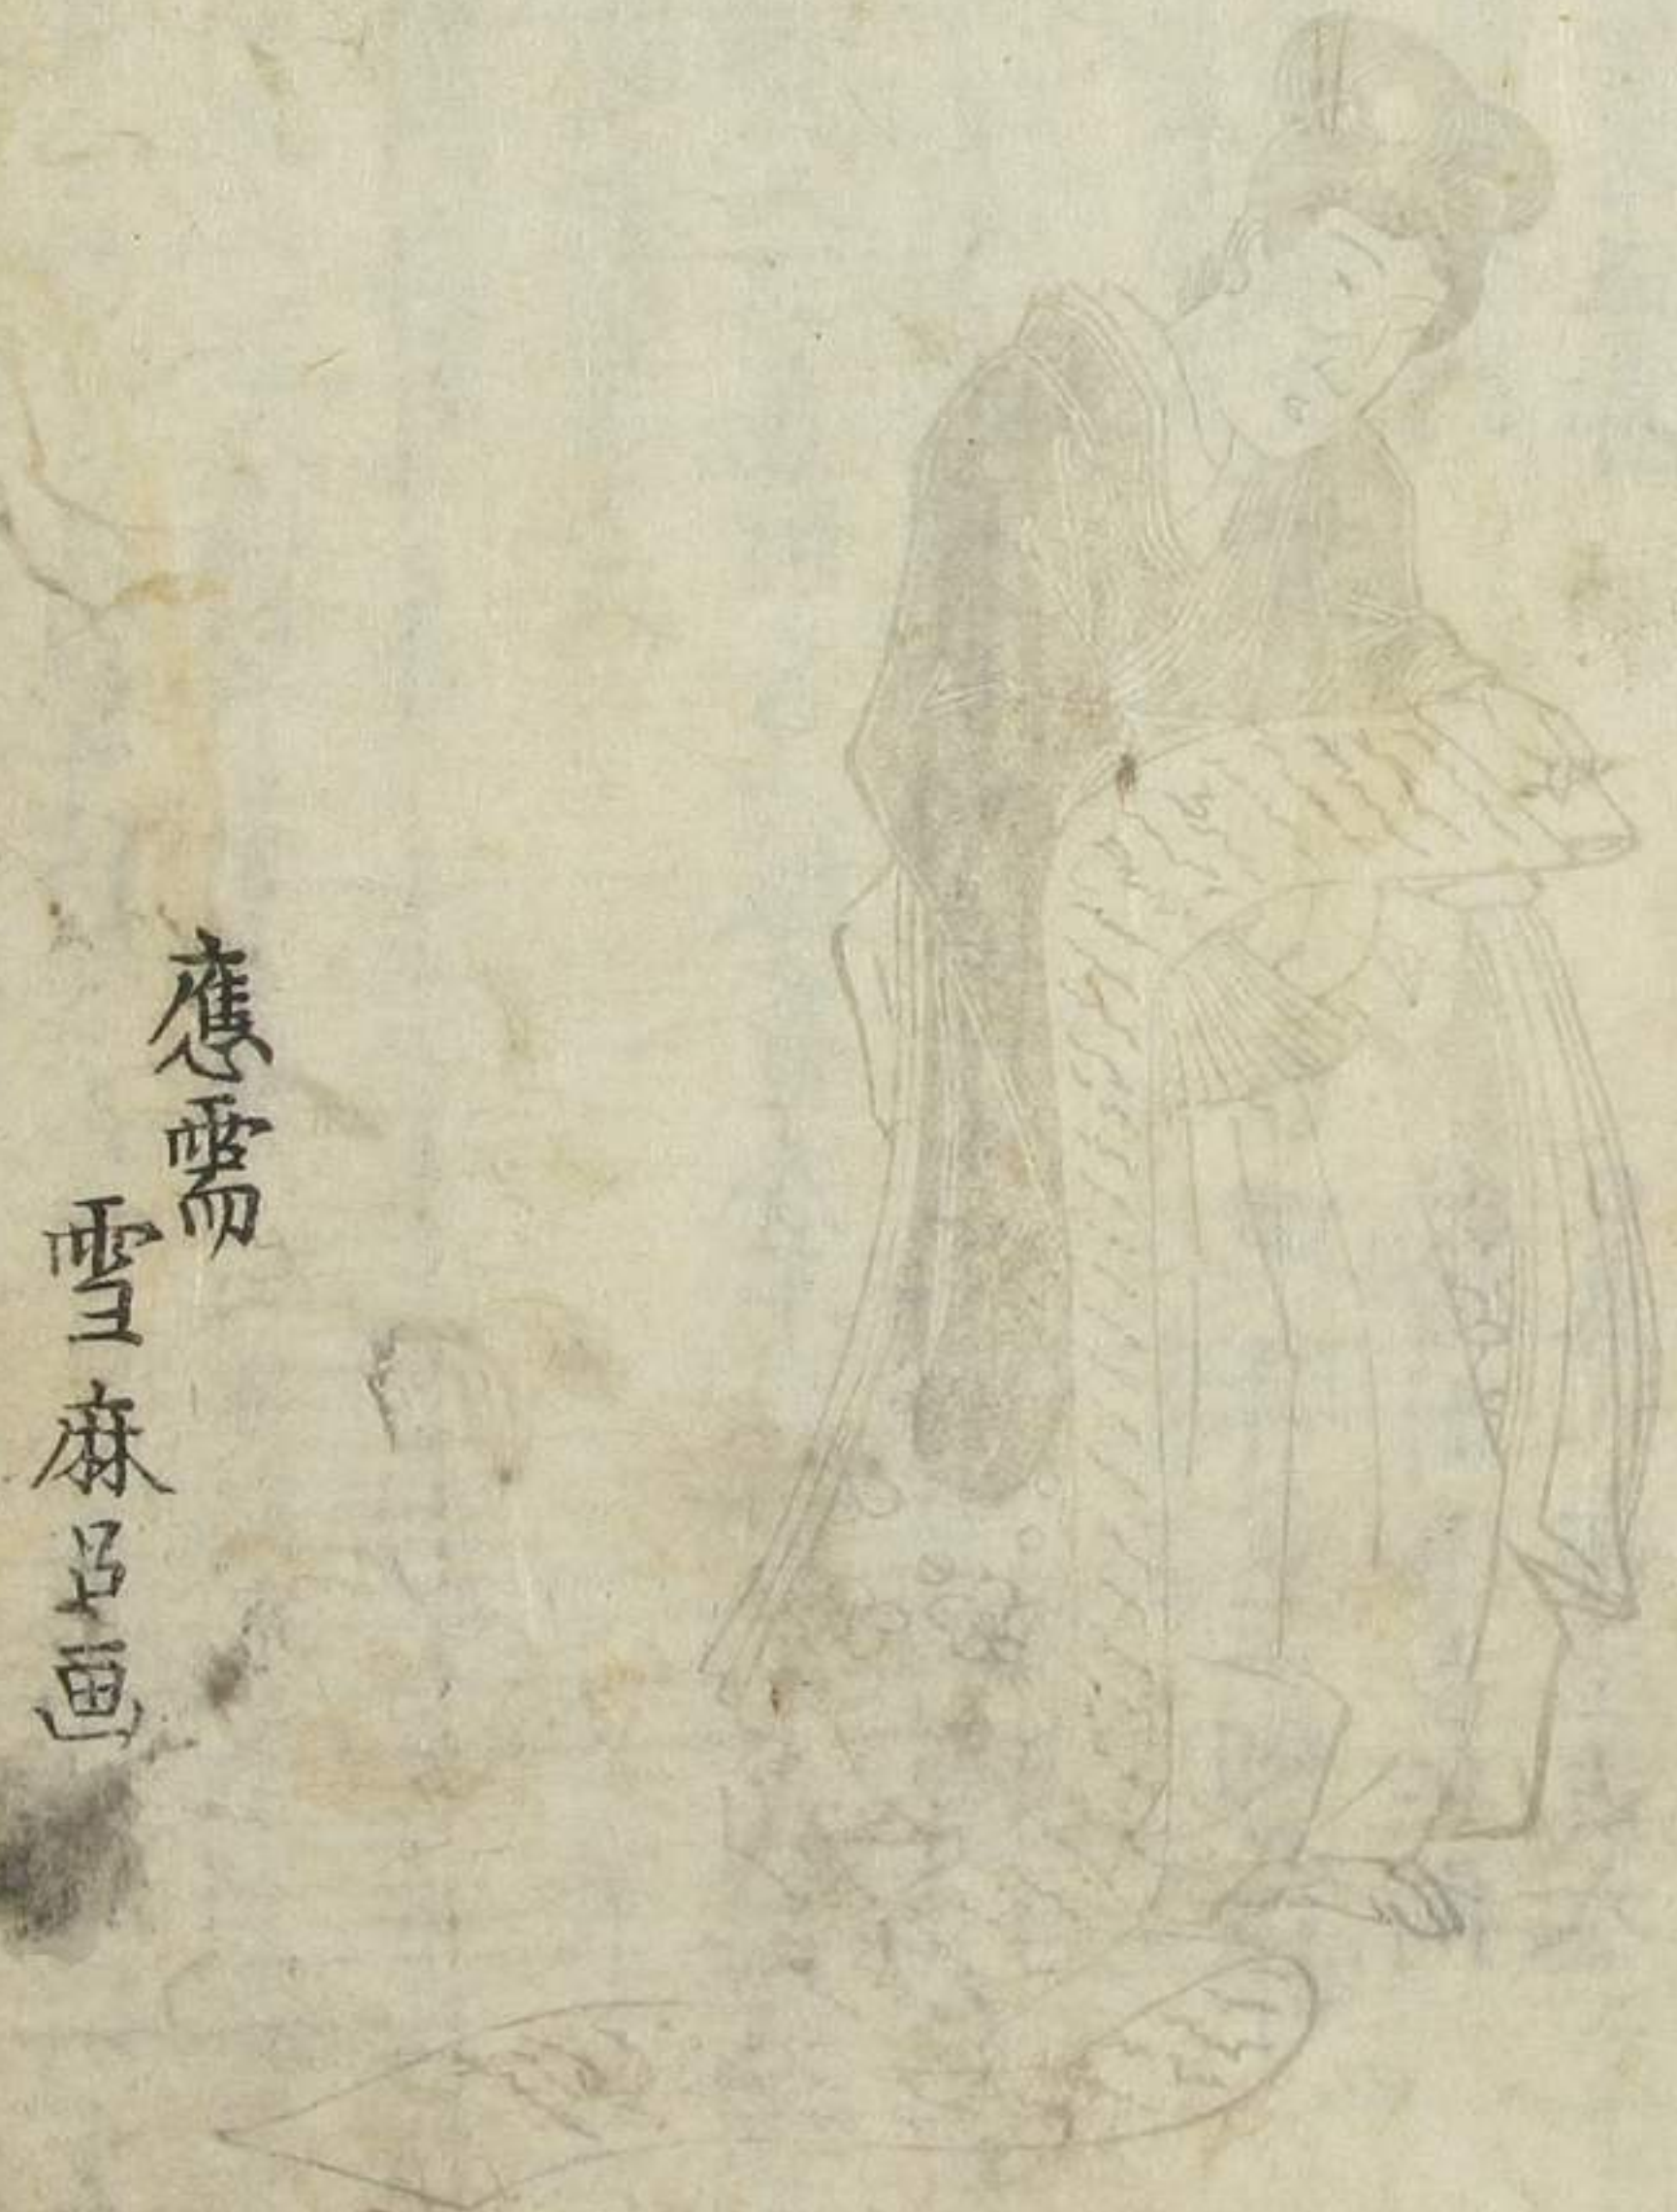 應需
雪麻呂画